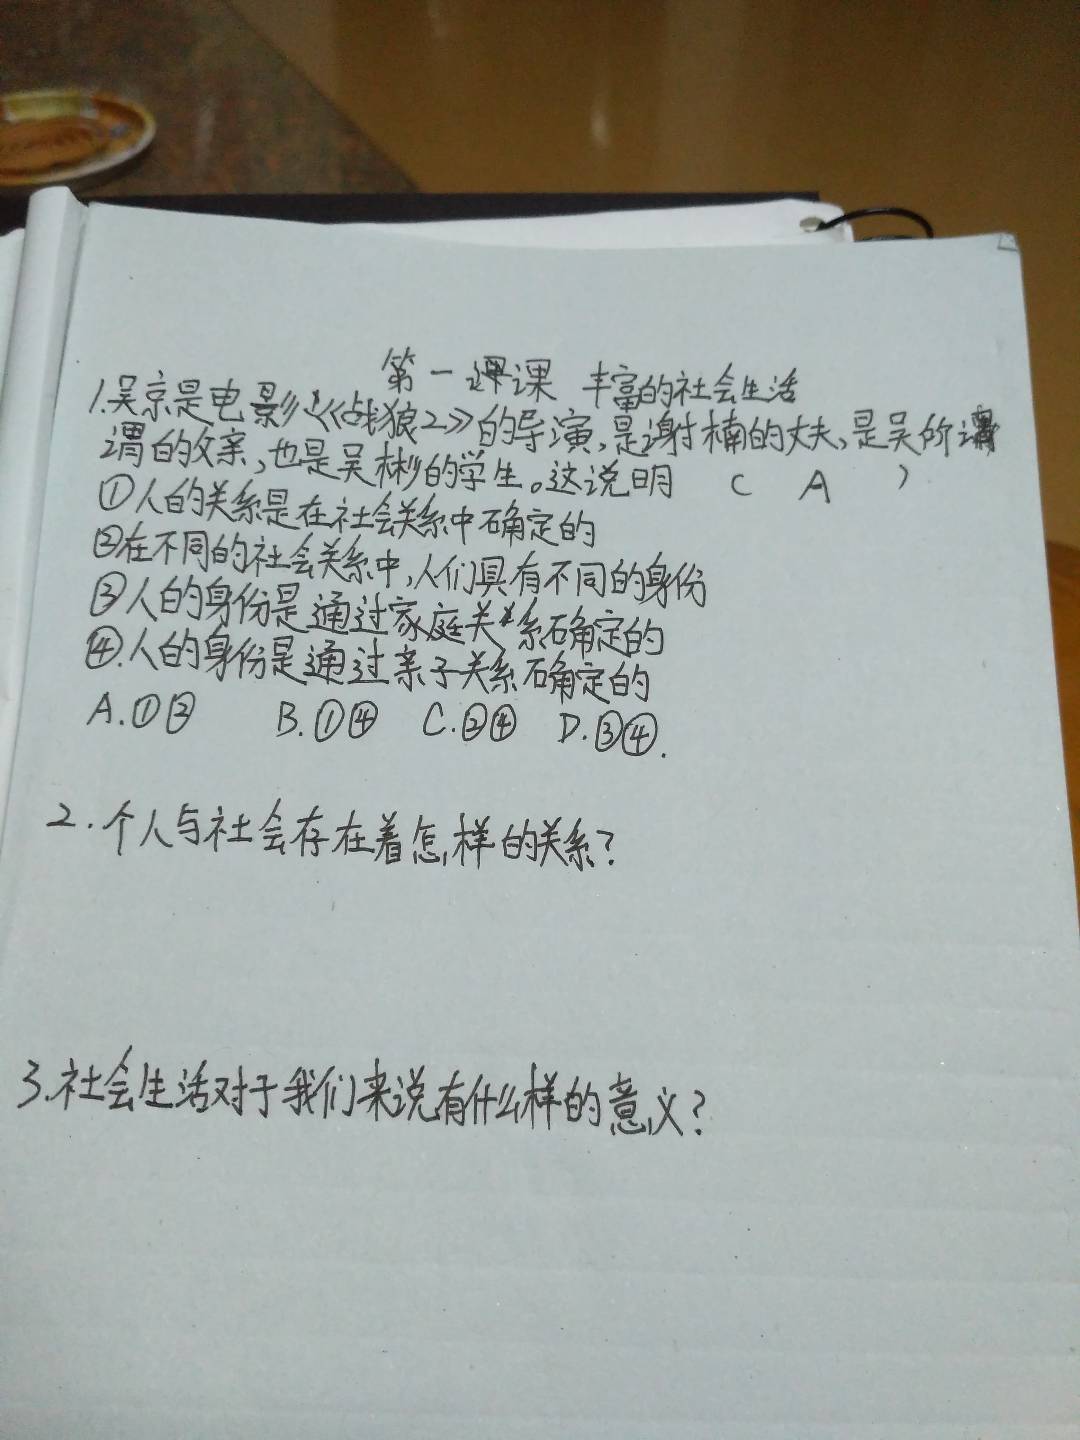 第一课 丰富的社会生活
1.吴京是电影《战狼2》的导演,是谢楠的丈夫,是吴所
谓的父亲,也是吴彬的学生。这说明 ( A )
①人的关系是在社会关系中确定的
②在不同的社会关系中,人们具有不同的身份
③人的身份是通过家庭关系确定的
④.人的身份是通过亲子关系确定的
A.①② B.①④ C.②④ D.③④.
2.个人与社会存在着怎样的关系?
3.社会生活对于我们来说有什么样的意义?